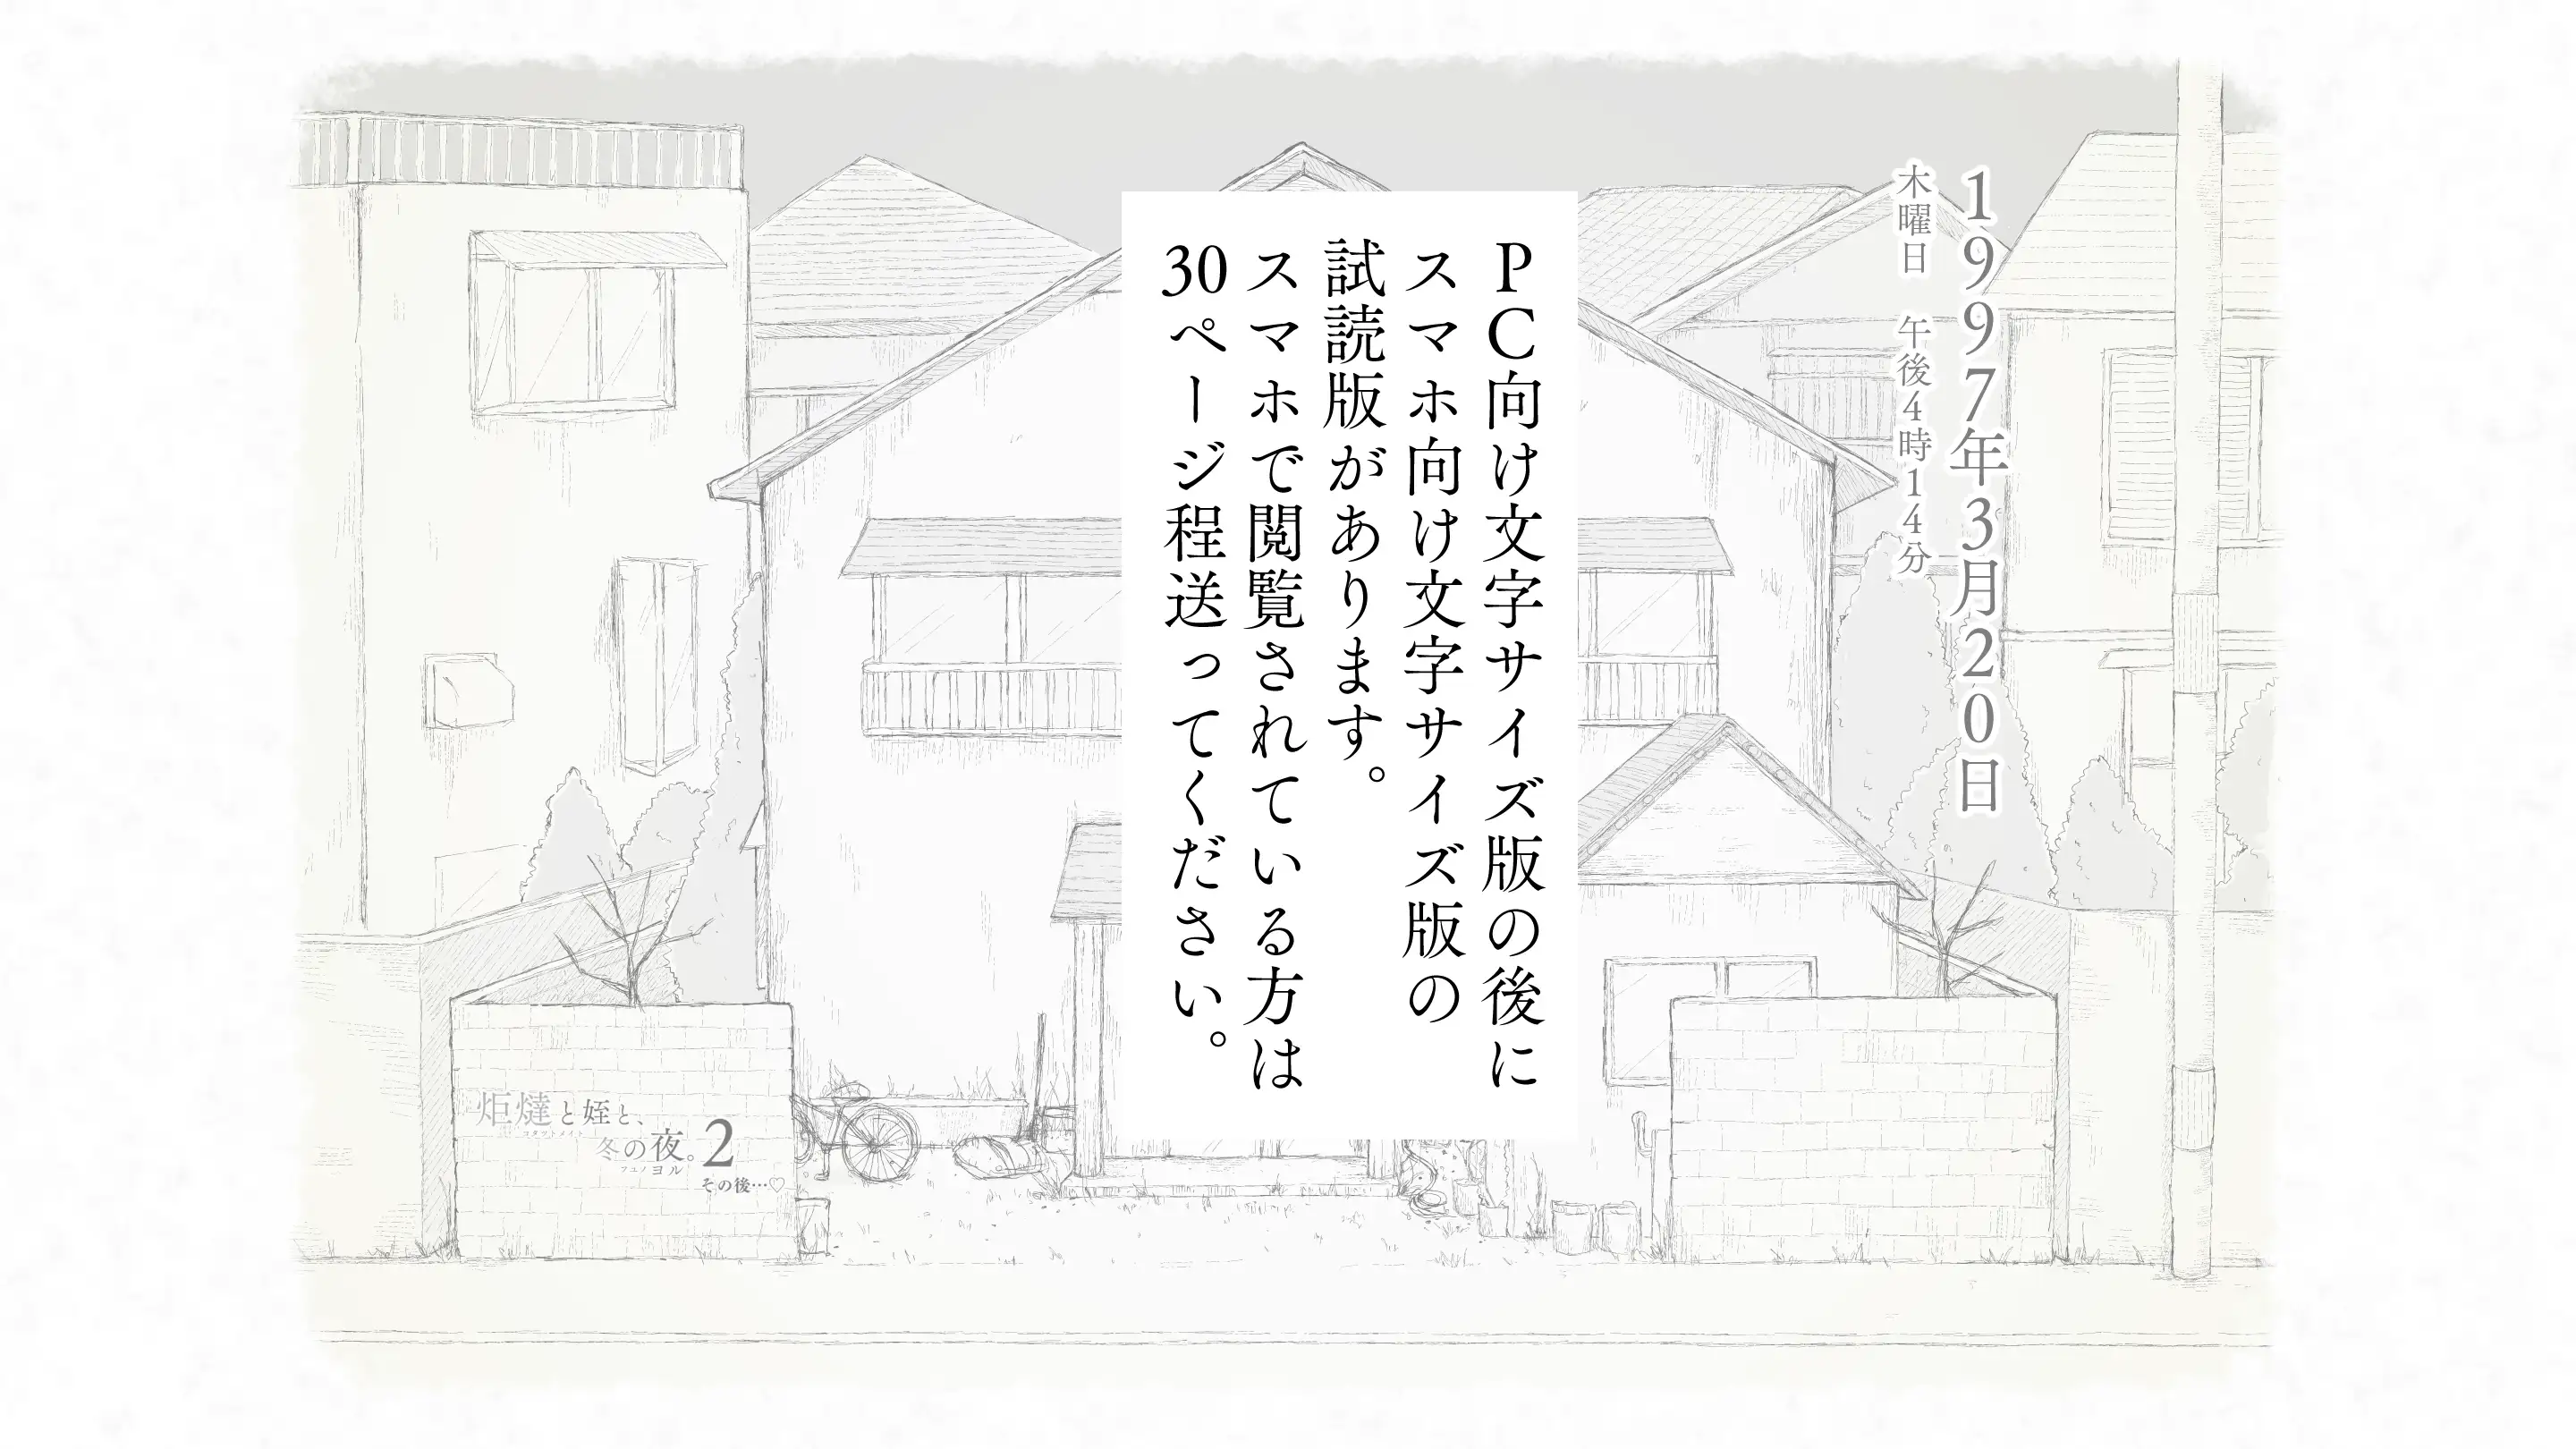 1997年3月20日
木曜日　午後4時14分
PC向け文字サイズ版の後に
スマホ向け文字サイズ版の
試読版があります。
スマホで閲覧されている方は
30ページ程送ってください。
炬燵と姪と、
コタツトメイト
冬の夜。2
フユノヨル
その後…♡